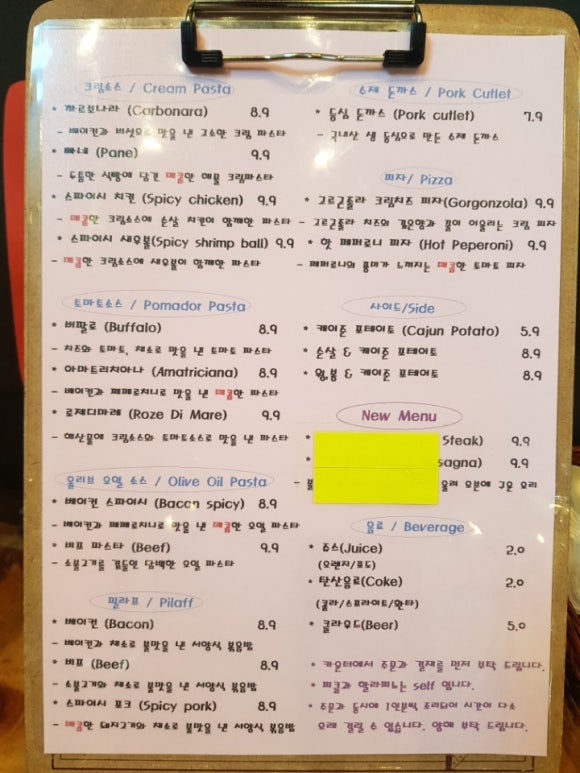 크림소스 / Cream Pasta
* 까르보나라 (Carbonara) 8.9
- 베이컨과 버섯으로 맛을 낸 고소한 크림 파스타
* 빠네 (Pane) 9.9
- 두툼한 식빵에 담긴 매콤한 해물 크림파스타
* 스파이시 치킨 (Spicy chicken) 9.9
- 매콤한 크림소스에 순살 치킨이 함께한 파스타
* 스파이시 새우볼(Spicy shrimp ball) 9.9
- 매콤한 크림소스에 새우볼이 함께한 파스타
토마토소스 / Pomador Pasta
* 버팔로 (Buffalo) 8.9
- 치즈와 토마토, 채소로 맛을 낸 토마토 파스타
* 아마트리치아나 (Amatriciana) 8.9
- 베이컨과 페페로치니로 맛을 낸 매콤한 파스타
* 로제디마레 (Roze Di Mare) 9.9
- 해산물에 크림소스와 토마토소스로 맛을 낸 파스타
올리브 오일 소스 / Olive Oil Pasta
* 베이컨 스파이시 (Bacon spicy) 8.9
- 베이컨과 페페로치니로 맛을 낸 매콤한 오일 파스타
* 비프 파스타 (Beef) 9.9
- 소불고기를 곁들인 담백한 오일 파스타
필라프 / Pilaff
* 베이컨 (Bacon) 8.9
- 베이컨과 채소로 불맛을 낸 서양식 볶음밥
* 비프 (Beef) 8.9
- 소불고기와 채소로 불맛을 낸 서양식 볶음밥
* 스파이시 포크 (Spicy pork) 8.9
- 매콤한 돼지고기와 채소로 불맛을 낸 서양식 볶음밥
수제 돈까스 / Pork Cutlet
* 등심 돈까스 (Pork cutlet) 7.9
- 국내산 생 등심으로 만든 수제 돈까스
피자/ Pizza
* 고르곤졸라 크림치즈 피자(Gorgonzola) 9.9
- 고르곤졸라 치즈의 깊은향과 꿀이 어울리는 크림 피자
* 핫 페퍼로니 피자 (Hot Peperoni) 9.9
- 페퍼로니의 풍미가 느껴지는 매콤한 토마토 피자
사이드/Side
* 케이준 포테이토 (Cajun Potato) 5.9
* 순살 & 케이준 포테이토 8.9
* 윙,봉 & 케이준 포테이토 8.9
New Menu
* Steak) 9.9
* sagna) 9.9
- 올려 오븐에 구운 요리
음료 / Beverage
* 쥬스(Juice) 2.0
(오렌지/포도)
* 탄산음료(Coke) 2.0
(콜라/스프라이트/환타)
* 클라우드(Beer) 5.0
* 카운터에서 주문과 결제를 먼저 부탁 드립니다.
* 피클과 할라피뇨는 self 입니다.
* 주문과 동시에 1인분씩 조리되어 시간이 다소
오래 걸릴 수 있습니다. 양해 부탁 드립니다.